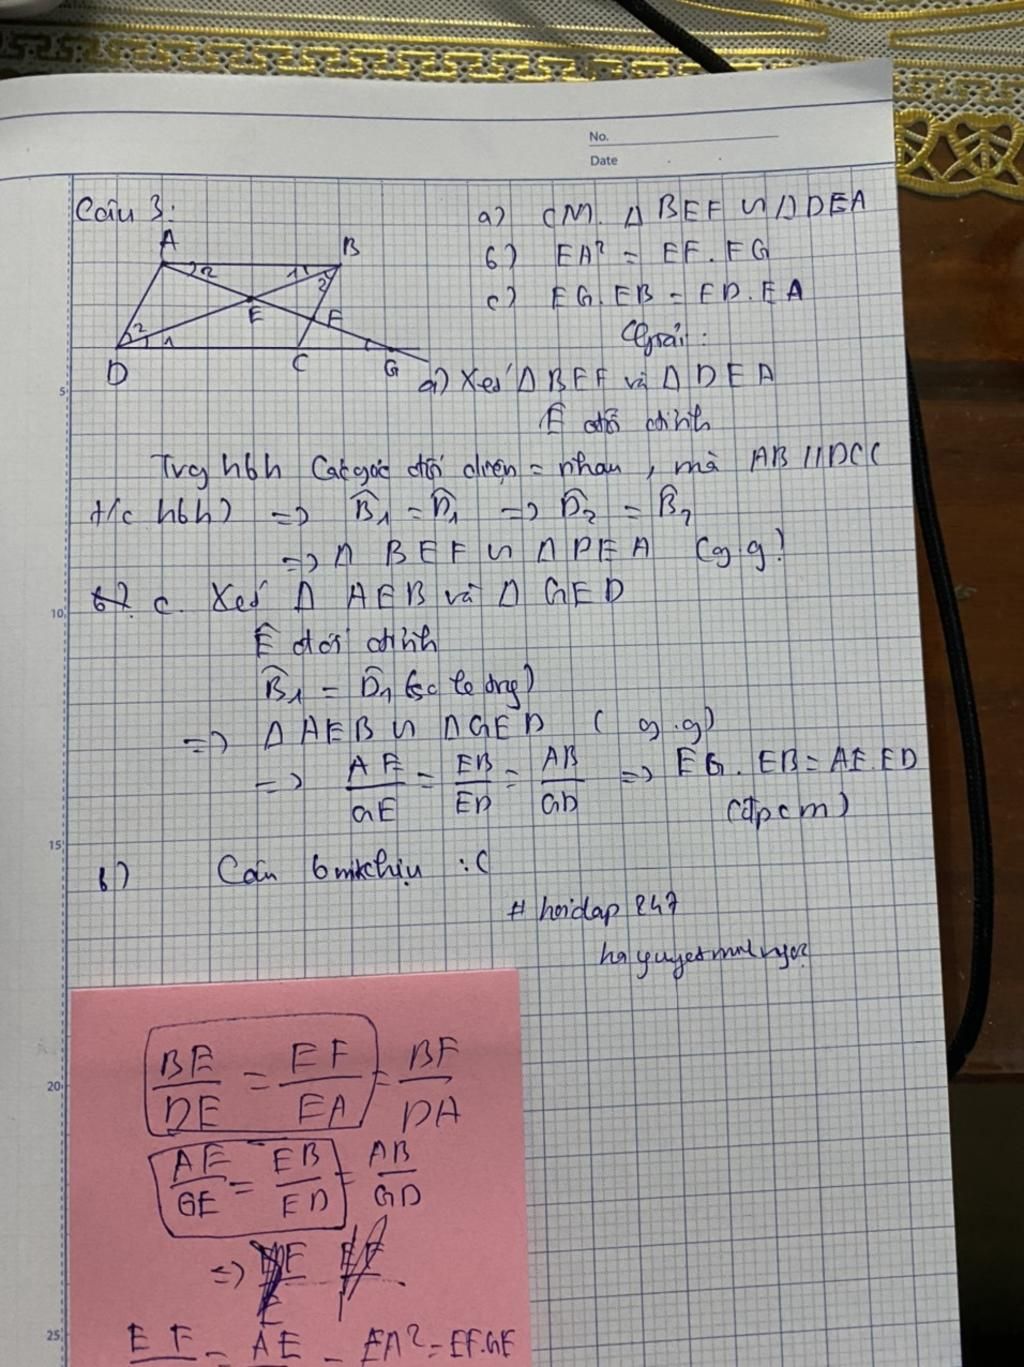 No.
Date
Câu 3:
a) CM. Δ BEF ∽ Δ DEA
b) EA² = EF. FG
c) EG. EB = ED. EA
A
2
1
B
2
E
F
2
1
D
C
G
Giải:
a) Xét Δ BEF và Δ DEA
Ê đối đỉnh
Trg hbh Các góc đối diện = nhau, mà AB // DC (
t/c hbh) => B̂₁ = D̂₁ => D̂₂ = B̂₂
=> Δ BEF ∽ Δ DEA (g.g)
c. Xét Δ AEB và Δ GED
Ê đối đỉnh
B̂₁ = D̂₁ (sc le trg)
=> Δ AEB ∽ Δ GED ( g.g)
=> AE/GE = EB/ED = AB/GD => EG. EB = AE.ED
(đpcm)
b) Câu b mik chịu :(
# hoidap 247
5
10
15
20
25
BE/DE = EF/EA = BF/DA
AE/GE = EB/ED = AB/GD
=>
EF = AE = EA² = EF.GE